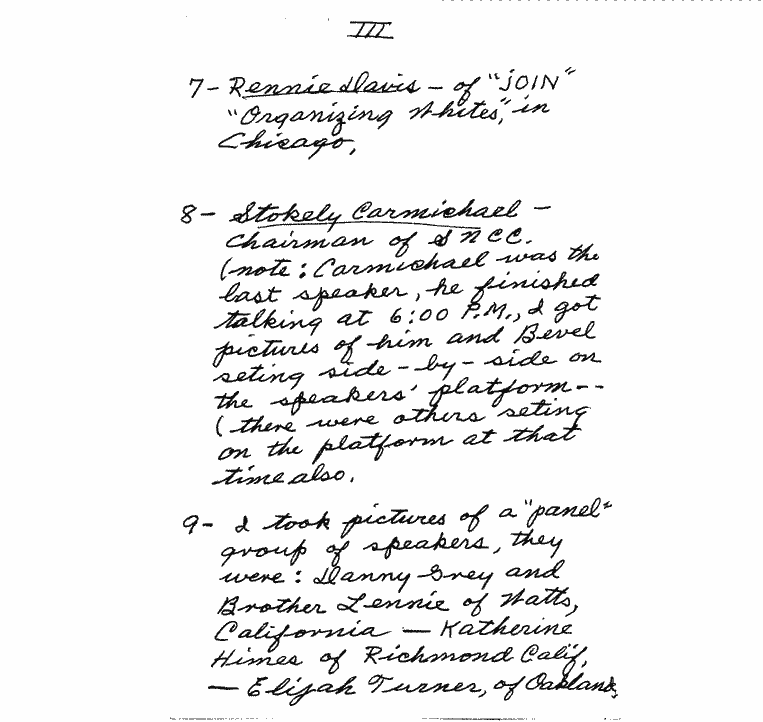 III
7- Rennie Davis - of "JOIN"
"Organizing Whites," in
Chicago,
8- Stokely Carmichael -
Chairman of SNCC.
(note: Carmichael was the
last speaker, he finished
talking at 6:00 P.M., I got
pictures of him and Bevel
seting side-by-side on
the speakers' platform--
(there were others seting
on the platform at that
time also.
9- I took pictures of a "panel"
group of speakers, they
were: Danny Grey and
Brother Lennie of Watts,
California — Katherine
Himes of Richmond Calif,
— Elijah Turner, of Oakland,